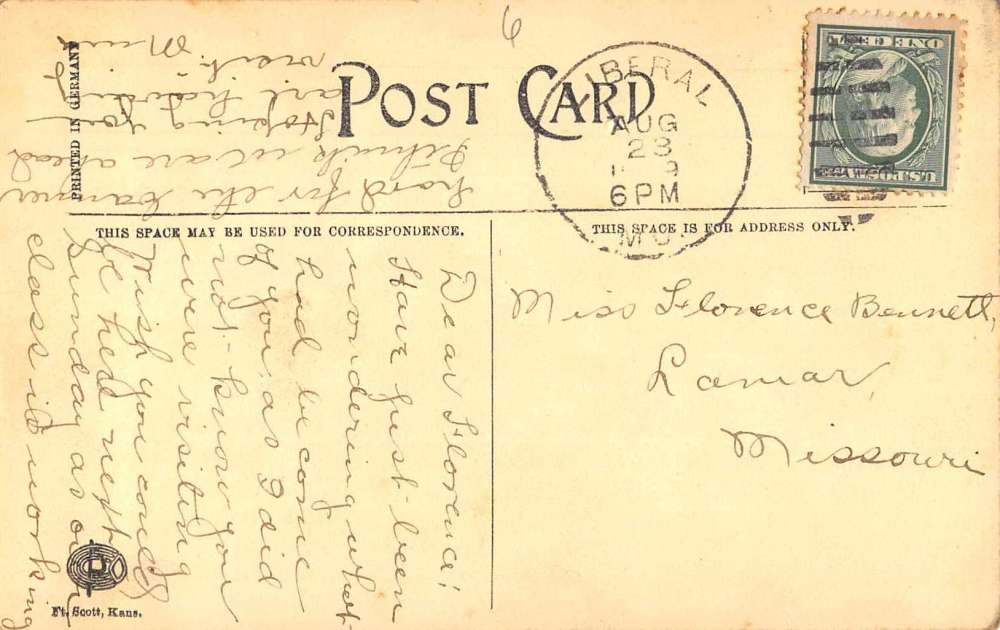 PRINTED IN GERMANY
POST CARD
6
LIBERAL
AUG
23
6 PM
MO.
U.S. POSTAGE
ONE CENT
THIS SPACE MAY BE USED FOR CORRESPONDENCE.
THIS SPACE IS FOR ADDRESS ONLY.
Dear Florence!
Have just been
wondering what
had become
of you, as I did
not know you
were visiting
Wish you could
be here next
Sunday as our
class is working
hard for the banner
I think we are ahead
Hoping you
are having
visit.
Miss Florence Bennett,
Lamar,
Missouri
Ft. Scott, Kans.